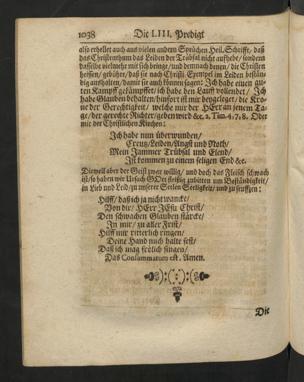 1038 Die LIII. Predigt
also erhellet auch aus vielen andern Sprüchen Heil. Schrifft, daß
das Christenthum das Leiden der Trübsal nicht auffhebe, sondern
dasselbe vielmehr mit sich bringe, und demnach denen, die Christen
heissen, gebühre, daß sie nach Christi Exempel im Leiden bestän-
dig aushalten, damit sie auch können sagen: Ich habe einen gu-
ten Kampff gekämpffet, ich habe den Lauff vollendet, Ich
habe Glauben behalten, hinfort ist mir beygeleget, die Kro-
ne der Gerechtigkeit, welche mir der HErr an jenem Ta-
ge, der gerechte Richter, geben wird &c. 2. Tim. 4. 7, 8. Oder
mit der Christlichen Kirchen:
Ich habe nun überwunden,
Creutz, Leiden, Angst und Noth,
Mein Jammer Trübsal und Elend,
Ist kommen zu einem seligen End &c.
Dieweil aber der Geist zwar willig, und doch das Fleisch schwach
ist, so haben wir Ursach GOtt fleißig zubitten um Beständigkeit,
in Lieb und Leid, zu unserer Seelen Seeligkeit, und zu seufftzen:
Hilff, daß ich ja nicht wancke,
Von dir, HErr JEsu Christ,
Den schwachen Glauben stärcke,
In mir, zu aller Frist,
Hilff mir ritterlich ringen,
Deine Hand mich halte fest,
Daß ich mag frölich singen,
Das Consummatum est. Amen.
Die